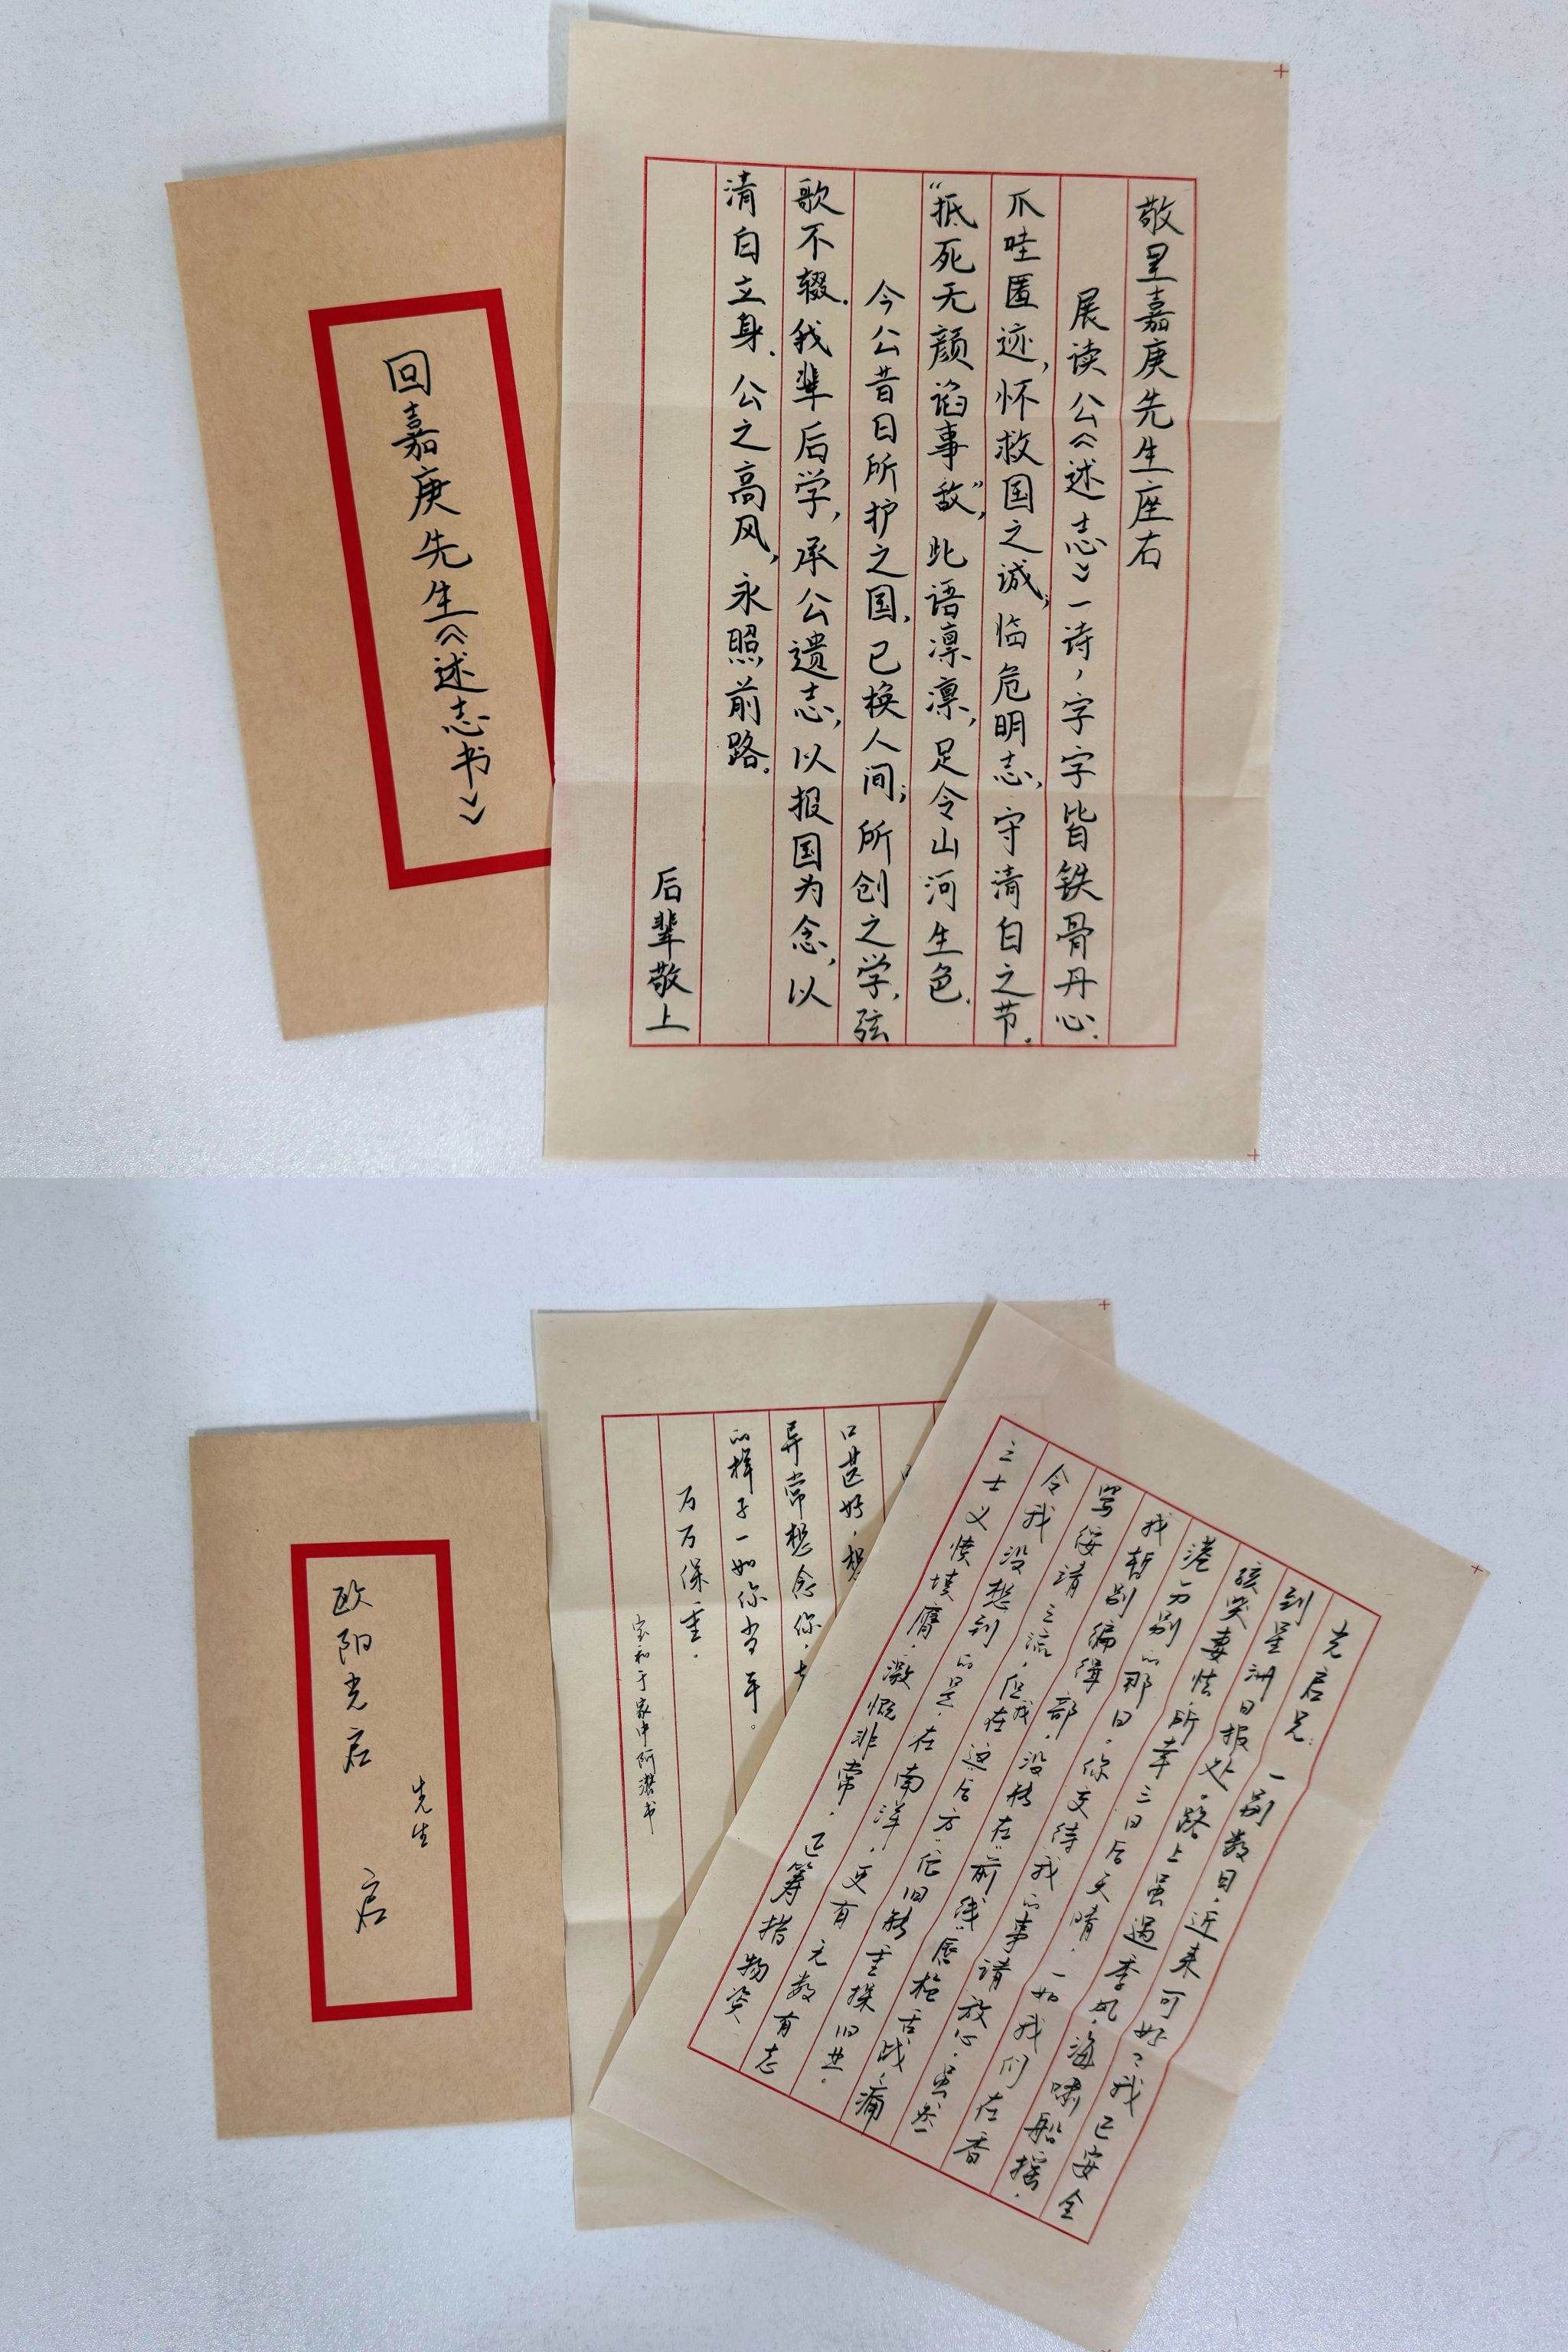 回嘉庚先生《述志书》
敬呈嘉庚先生座右
展读公《述志》一诗，字字皆铁骨丹心.
爪哇匿迹，怀救国之诚，临危明志，守清白之节.
“抵死无颜谄事敌”，此语凛凛，足令山河生色.
今公昔日所护之国，已换人间；所创之学，弦
歌不辍.我辈后学，承公遗志，以报国为念，以
清白立身.公之高风，永照前路.
后辈敬上
欧阳光启
先生
启
光启兄：一别数日，近来可好？我已安全
到星洲日报处，路上虽遇季风，海啸船摇，
孩哭妻怯，所幸三日后天晴，一如我们在香
港分别的那日。你交待我的事请放心，虽然
我暂别编辑部，没能在“前线”唇枪舌战，痛
写绥靖之流，但我在这“后方”依旧能重操旧业。
令我没想到的是，在南洋，更有无数有志
之士义愤填膺，激慨非常，已筹措物资
口甚好，想
异常想念你，
的样子一如你当年。
万万保重.
于家中阿
书